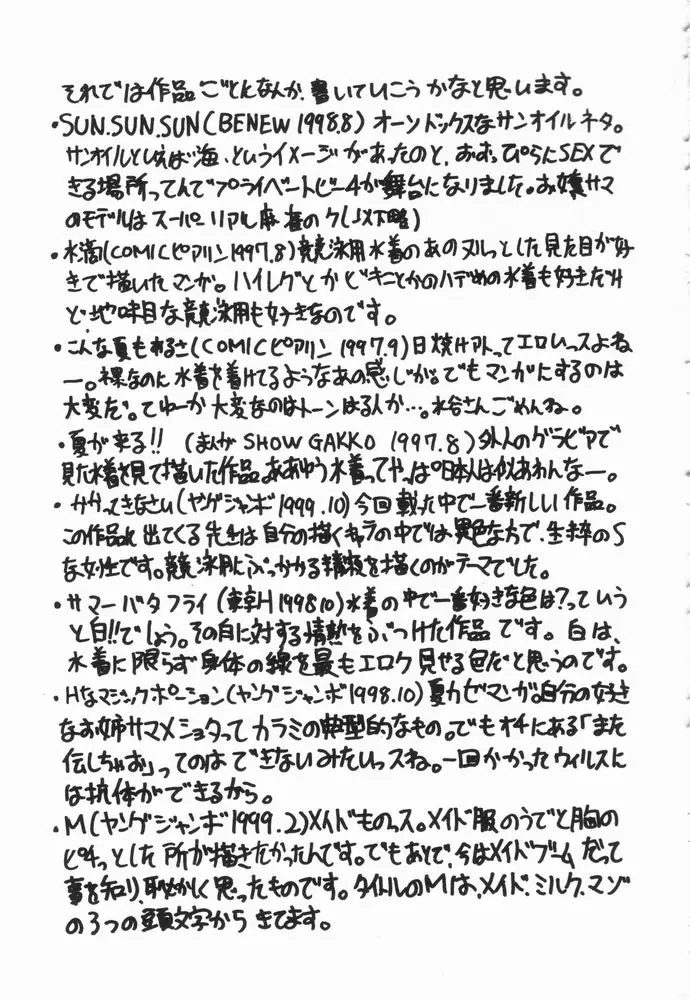 それでは作品ごとになんか、書いていこうかなと思います。
・SUN.SUN.SUN(BENEW 1998.8) オーソドックスなサンオイルネタ。
サンオイルといえば海、というイメージがあったのと、おおっぴらにSEXで
きる場所ってんでプライベートビーチが舞台になりました。お嬢サマ
のモデルはスーパーリアル麻雀のク(以下略)
・水滴(COMICピアリン1997.8)競泳用水着のあのヌルっとした見た目が好
きで描いたマンガ。ハイレグとかビキニとかのハデめの水着も好きだけ
ど、地味目な競泳用も好きなのです。
・こんな夏もあるさ(COMICピアリン 1997.9)日焼けアトってエロいっスよね
ー。裸なのに水着を着けてるようなあの感じが。でもマンガにするのは
大変だ。てゆーか大変なのはトーンはる人か…。水谷さんごめんね。
・夏が来る!! (まんが SHOW GAKKO 1997.8)外人のグラビアで
見た水着を見て描いた作品。ああゆう水着ってやっぱ日本人は似あわんなー。
・かかってきなさい(ヤングジャンボ1999.10)今回載った中で一番新しい作品。
この作品に出てくる先生は自分の描くキャラの中では異色な方で、生粋のS
な女性です。競泳用にぶっかかる精液を描くのがテーマでした。
・サマーバタフライ(東京H1998.10)水着の中で一番好きな色は?っていう
と白!!でしょう。その白に対する情熱をぶつけた作品です。白は、
水着に限らず身体の線を最もエロく見せる色だと思うのです。
・Hなマジックポーション(ヤングジャンボ1998.10)夏カゼマンガ。自分の好き
なお姉サマ×ショタってカラミの典型的なもの。でもオチにある「また
伝しちゃお」ってのはできないみたいっスね。一回かかったウィルスに
は抗体ができるから。
・M(ヤングジャンボ1999.2)メイドものっス。メイド服のうでと胸の
ピチっとした所が描きたかったんです。でもあとで、今はメイドブームだって
事を知り、恥ずかしく思ったものです。タイトルのMは、メイド、ミルク、マゾ
の3つの頭文字からきてます。